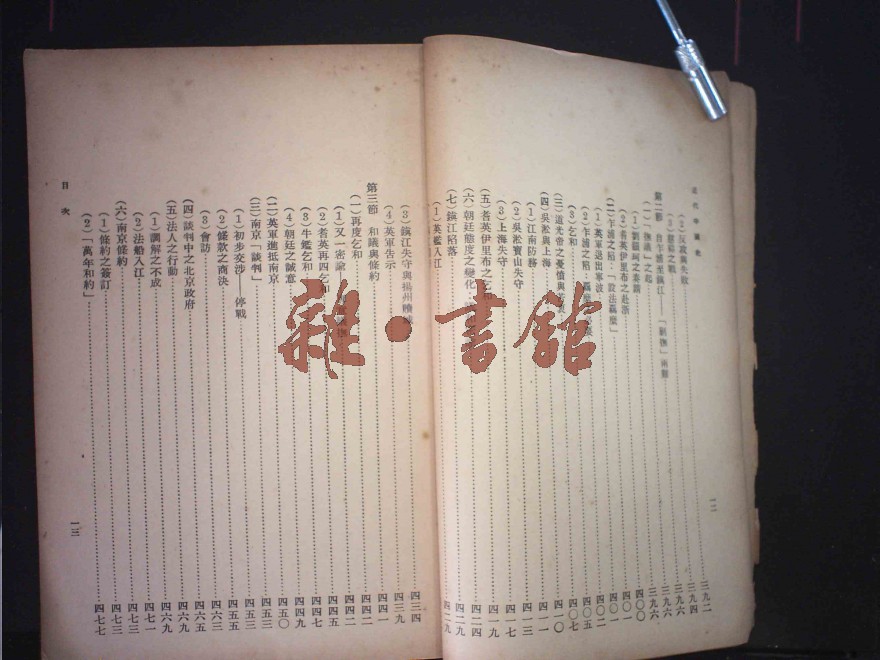 近代中國史
(2) 反攻與失敗 三九二
(3) 慈谿之戰 三九四
第二節 自乍浦至鎮江——「剿撫」兩難 三九六
(一)「撫議」之起 三九六
(1) 劉韻珂之奏請 四〇〇
(2) 耆英伊里布之赴浙 四〇一
(二) 乍浦之陷:「設法羈縻」 四〇二
(1) 英軍退出寧波
(2) 乍浦之陷 四〇五
(3) 乞和 四〇七
(三) 道光帝之憂憤與 四一〇
(四) 吳淞與上海 四一一
(1) 江南防務 四一三
(2) 吳淞寶山失守 四一七
(3) 上海失守 四一九
(五) 耆英伊里布之乞和 四二四
(六) 朝廷態度之變化 四二九
(七) 鎮江陷落
(1) 英艦入江
(3) 鎮江失守與揚州贖城 四三四
(4) 英軍告示 四三九
第三節 和議與條約 四四一
(一) 再度乞和 四四二
(1) 又一密諭 四四二
(2) 耆英再四乞和 四四七
(3) 牛鑑乞和 四四九
(4) 朝廷之誠意 四五〇
(二) 英軍進抵南京 四五三
(三) 南京「談判」 四五三
(1) 初步交涉——停戰 四五五
(2) 條款之商決 四六三
(3) 會訪 四六五
(四) 談判中之北京政府 四六九
(五) 法人之行動 四六九
(1) 調解之不成 四七一
(2) 法船入江 四七三
(六) 南京條約 四七三
(1) 條約之簽訂 四七三
(2)「萬年和約」 四七七
目次
一三
雜·書館